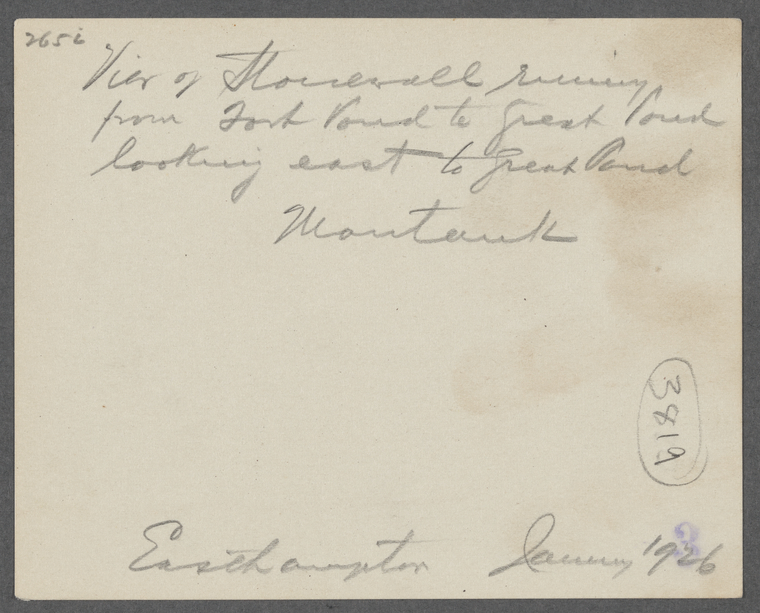 265i
View of Stonewall running
from Fort Pond to Great Pond
looking east to Great Pond
Montauk
3819
Easthampton January 1926